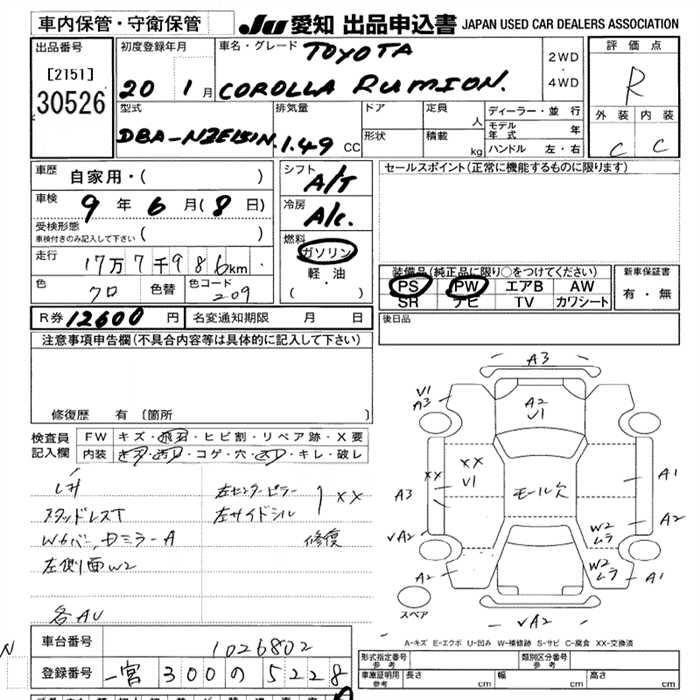 車内保管・守衛保管 JU 愛知 出品申込書 JAPAN USED CAR DEALERS ASSOCIATION
出品番号 初度登録年月 車名・グレード TOYOTA 2WD 評価点
[2151] 20 1月 COROLLA RUMION. 4WD R
30526 型式 排気量 ドア 定員 人 ディーラー・並行 外装 内装
DBA-NZE151N. 1.49 CC 形状 積載 kg モデル年式 年 C C
ハンドル 左・右
車歴 自家用・( ) シフト A/T セールスポイント(正常に機能するものに限ります)
車検 9年6月(8日) 冷房 A/C.
受検形態 ( )
車検付きのみ記入して下さい
燃料 ガソリン
走行 17万7千986km 軽・油 装備品(純正品に限り○をつけてください) 新車保証書
色 クロ 色替 色コード 209 ( ・ ) PS PW エアB AW 有・無
SR ナビ TV カワシート
R券 12600円 名変通知期限 月 日 後日品
注意事項申告欄(不具合内容等は具体的に記入して下さい)
修復歴 有〔箇所 〕
検査員記入欄 FW キズ・飛石・ヒビ割・リペア跡・X要
内装 キズ・汚れ・コゲ・穴・スレ・キレ・破レ
左センターピラー
スタッドレスT 左サイドシル XX
Wカバー、ミラーA 修復
左側面W2
各AU
A3
V1
A3
A2
V1
XX
XX
V1
A3
モール欠
A1
A2
√A2
W2
ムラ
W2
ムラ
A2
A1
スペア
√A2
A-キズ E-エクボ U-凹み W-補修跡 S-サビ C-腐食 XX-交換済
車台番号 1026802 形式指定番号 参考 類別区分番号 参考
登録番号 一宮300の5228 車庫証明用 参考 長さ cm 幅 cm 高さ cm